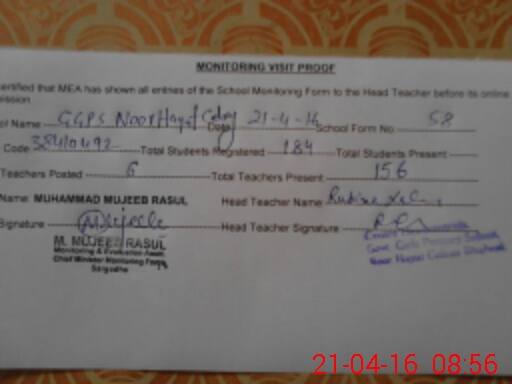 MONITORING VISIT PROOF
ertified that MEA has shown all entries of the School Monitoring Form to the Head Teacher before its online
ission.
ol Name GGPS Noor Hayat Colony Date 21-4-16 School Form No. 58
Code 38410492 Total Students Registered 184 Total Students Present
Teachers Posted 6 Total Teachers Present 156
Name: MUHAMMAD MUJEEB RASUL Head Teacher Name Rubina
Signature Head Teacher Signature
M. MUJEEB RASUL
Monitoring & Evaluation Asstt.
Chief Minister Monitoring Force
Sargodha
Govt. Girls Primary School
Noor Hayat Colony
21-04-16 08:56